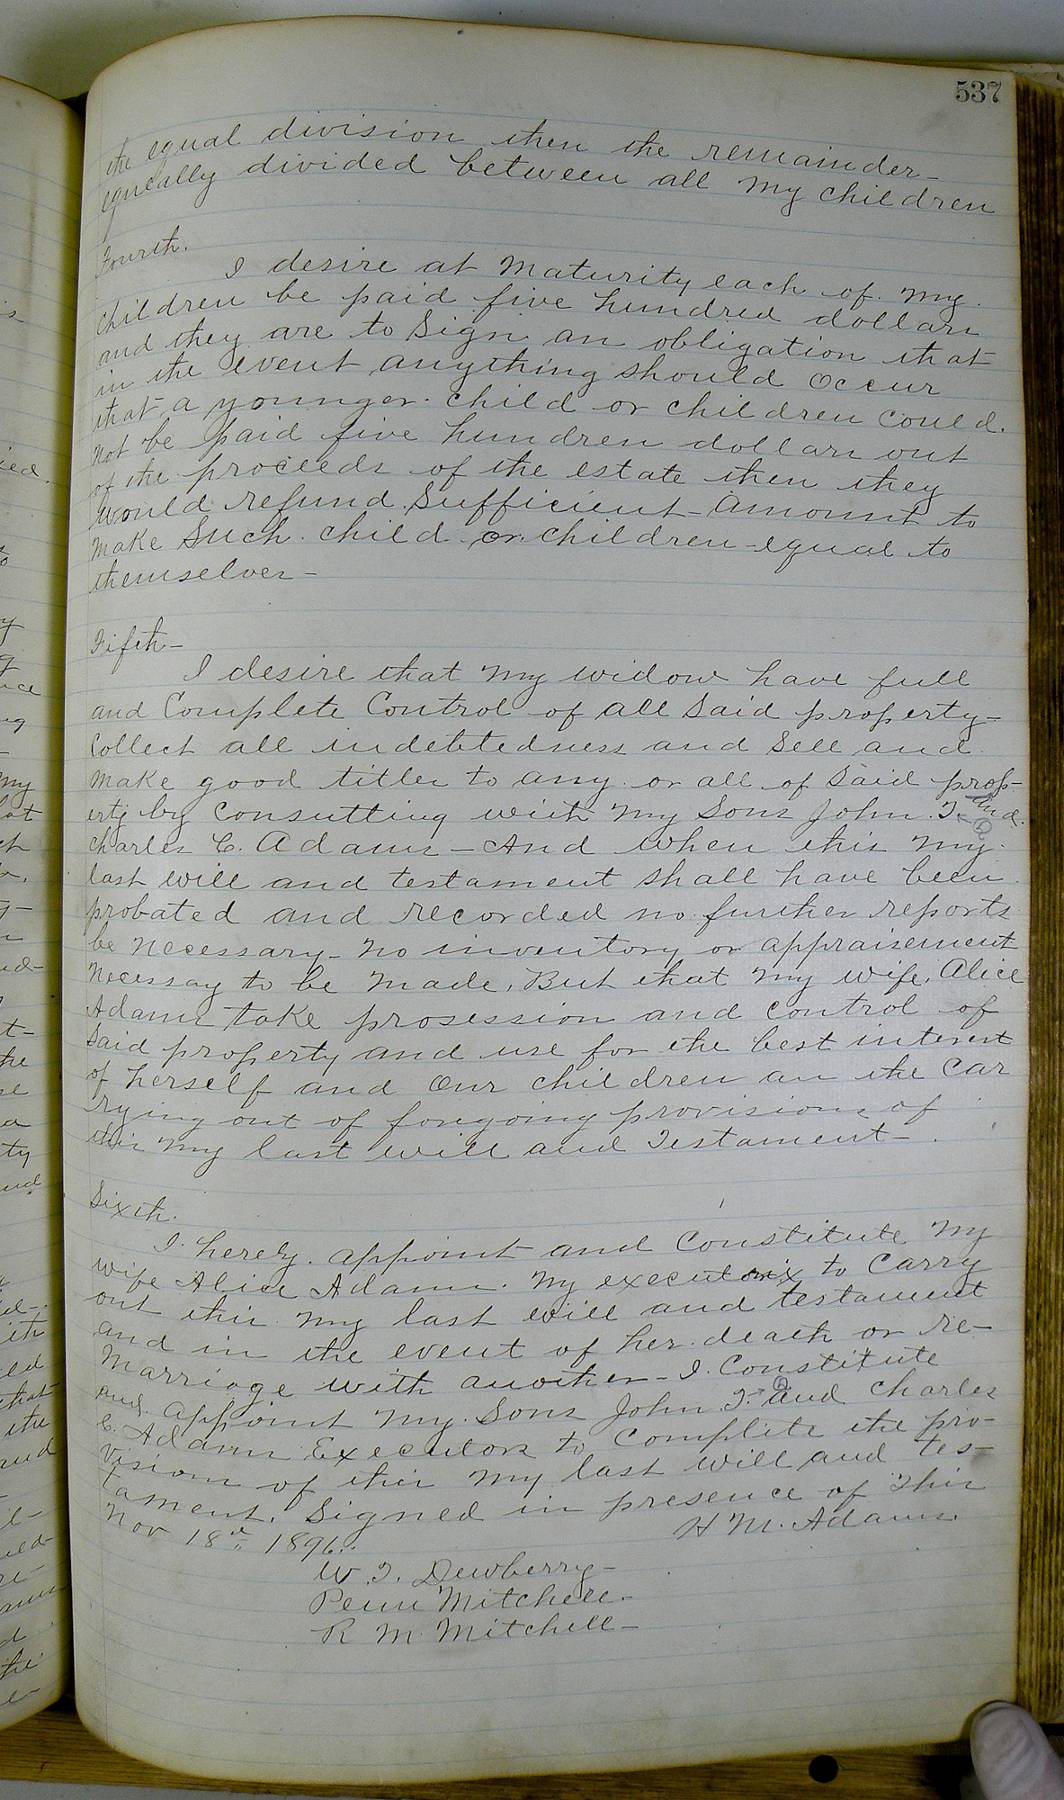 537
the equal division then the remainder-
equeally divided between all my children
Fourth.
I desire at maturity each of my
children be paid five hundred dollars
and they are to Sign an obligation that
in the event anything should occur
that a younger child or children could.
not be paid five hundren dollars out
of the proceeds of the estate then they
would refund Sufficient amount to
make Such child or children equal to
themselves-
Fifth-
I desire that my widow have full
and Complete Control of all Said property-
Collect all indebtedness and Sell and
make good titles to any or all of Said prop-
erty by Consutting with my Sons John T. and
Charles C. Adams - And when this my
last will and testament shall have been
probated and recorded no further reports
be necessary- no inventory or appraisement
necessay to be made. But that my wife, Alice
Adams take prosession and control of
Said property and use for the best interest
of herself and our children an the Car
rying out of forgoing provisions of
this my last will and Testament-
Sixth.
I herely appoint and Constitute my
wife Alice Adams. my executorix to Carry
out this my last will and testament
and in the event of her death or re-
marriage with another- I Constitute
and appoint my Sons John T. and Charles
C. Adams Executors to Complete the pro-
visions of this my last will and tes-
tament. Signed in presence of This
Nov 18th 1896.
H M. Adams.
W. T. Dewberry-
Penn Mitchell-
R M. Mitchell-